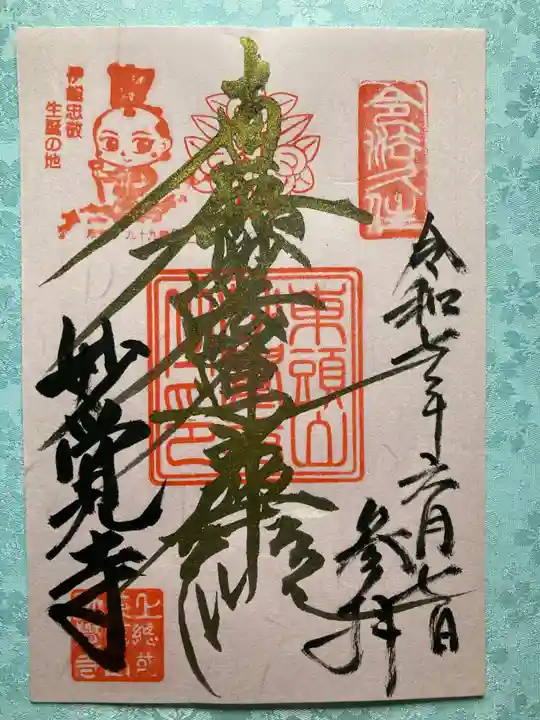 令法久住
令和七年六月七日
参拝
南無妙法蓮華経
東頭山
妙覚寺
伊能忠敬
生誕の地